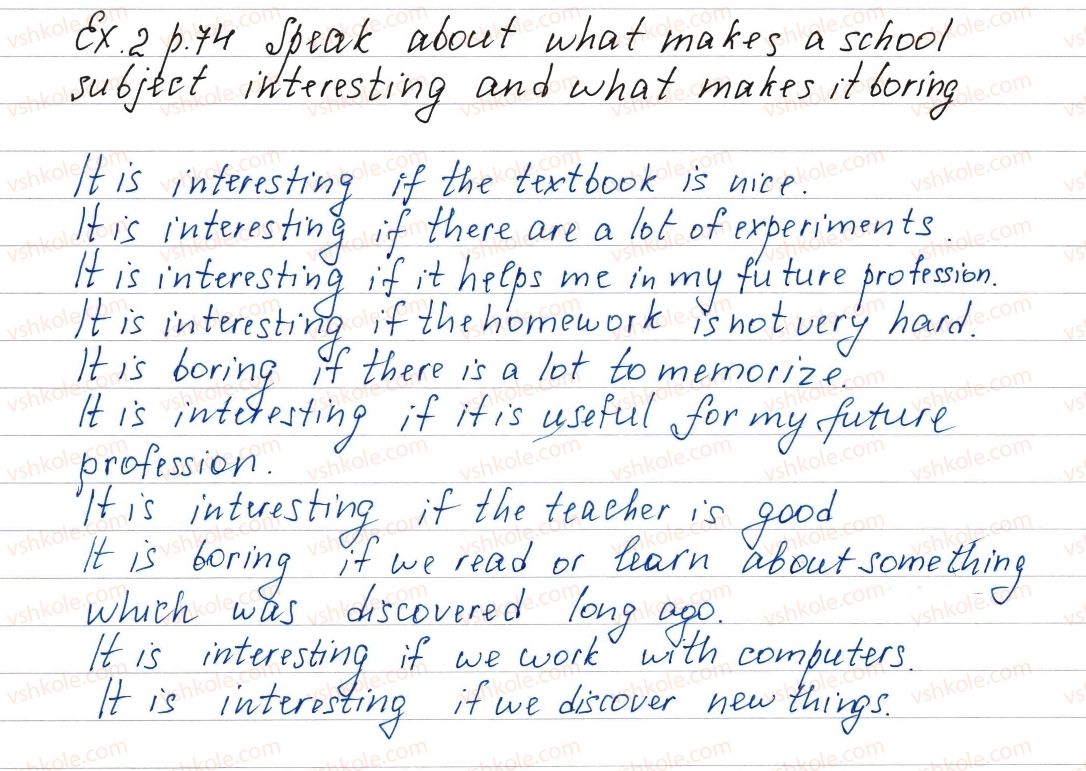 Ex. 2 p. 74 Speak about what makes a school
subject interesting and what makes it boring
It is interesting if the textbook is nice.
It is interesting if there are a lot of experiments.
It is interesting if it helps me in my future profession.
It is interesting if the homework is not very hard.
It is boring if there is a lot to memorize.
It is interesting if it is useful for my future
profession.
It is interesting if the teacher is good
It is boring if we read or learn about something
which was discovered long ago.
It is interesting if we work with computers.
It is interesting if we discover new things.
vshkole.com